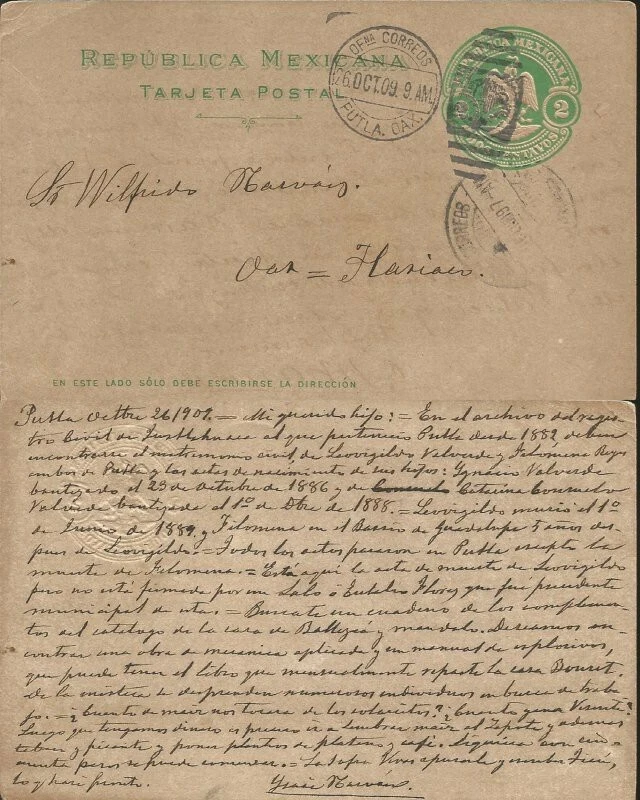 REPÚBLICA MEXICANA
TARJETA POSTAL
OFNA CORREOS
26.OCT.09. 9 AM.
PUTLA. OAX.
REPUBLICA MEXICANA
2 2
CENTAVOS
CORREOS
Sr Wilfrido Narváez.
Oax =
EN ESTE LADO SÓLO DEBE ESCRIBIRSE LA DIRECCIÓN
Putla Octbre 26/909. = Mi querido hijo: = En el archivo del regis-
tro Civil de Juxtlahuaca al que pertenecio Putla desde 1882 deben
encontrarse el matrimonio civil de Leovigildo Valverde y Filomena Reyes
ambos de Putla y las actas de nacimiento de sus hijos: Ignacio Valverde
bautizado el 29 de Octubre de 1886 y de Catarina Consuelo
Valverde bautizada el 1º de Dbre de 1888. = Leovigildo murió el 1º
de Junio de 1889, y Filomena en el Barrio de Guadalupe 5 años des-
pues de Leovigildo. = Todos los actos pasaron en Putla excepto la
muerte de Filomena. = Está aquí la acta de muerte de Leovigildo
pero no está firmada por un Lalo ó Eutalio Flores que fué presidente
municipal de este. = Buscate un cuaderno de los complemen-
tos del catálogo de la casa de Ballescá y mandalo. Deseamos en-
contrar una obra de mecanica aplicada y un manual de esplosivos,
que puede tener el libro que mensualmente reparte la casa Bouret.
De la mixteca se desprenden numerosos individuos en busca de traba-
jo. = ¿Cuanto de maiz nos tocara de los ¿Cuanto gana Vicente?
Luego que tengamos dinero es preciso ir a sembrar maiz el Zapote y ademas
tabaco y picante y poner plantos de platano y café. Siquiera con cin-
cuenta pesos se puede comenzar. =
lo y hace frente. Narváez.